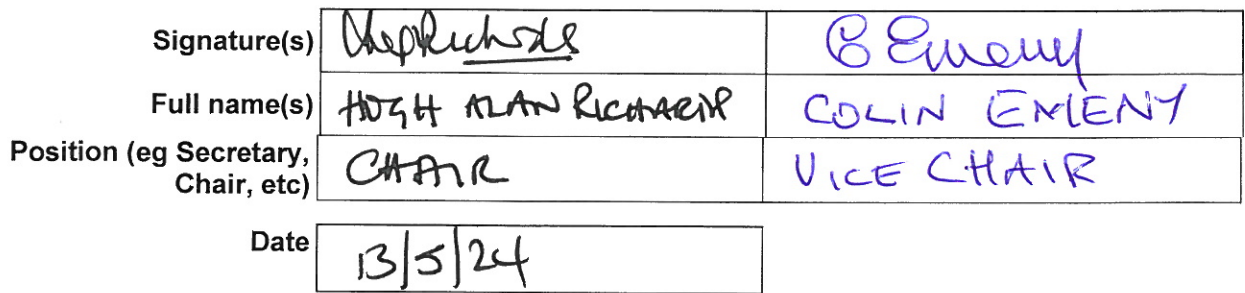 Signature(s) C Emeny
Full name(s) HUGH ALAN RICHARDS COLIN EMENY
Position (eg Secretary, Chair, etc) CHAIR VICE CHAIR
Date 13/5/24